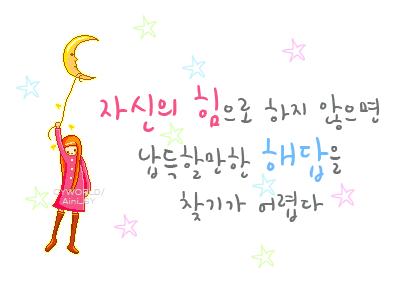 자신의 힘으로 하지 않으면
납득할만한 해답을
찾기가 어렵다
CYWORLD/